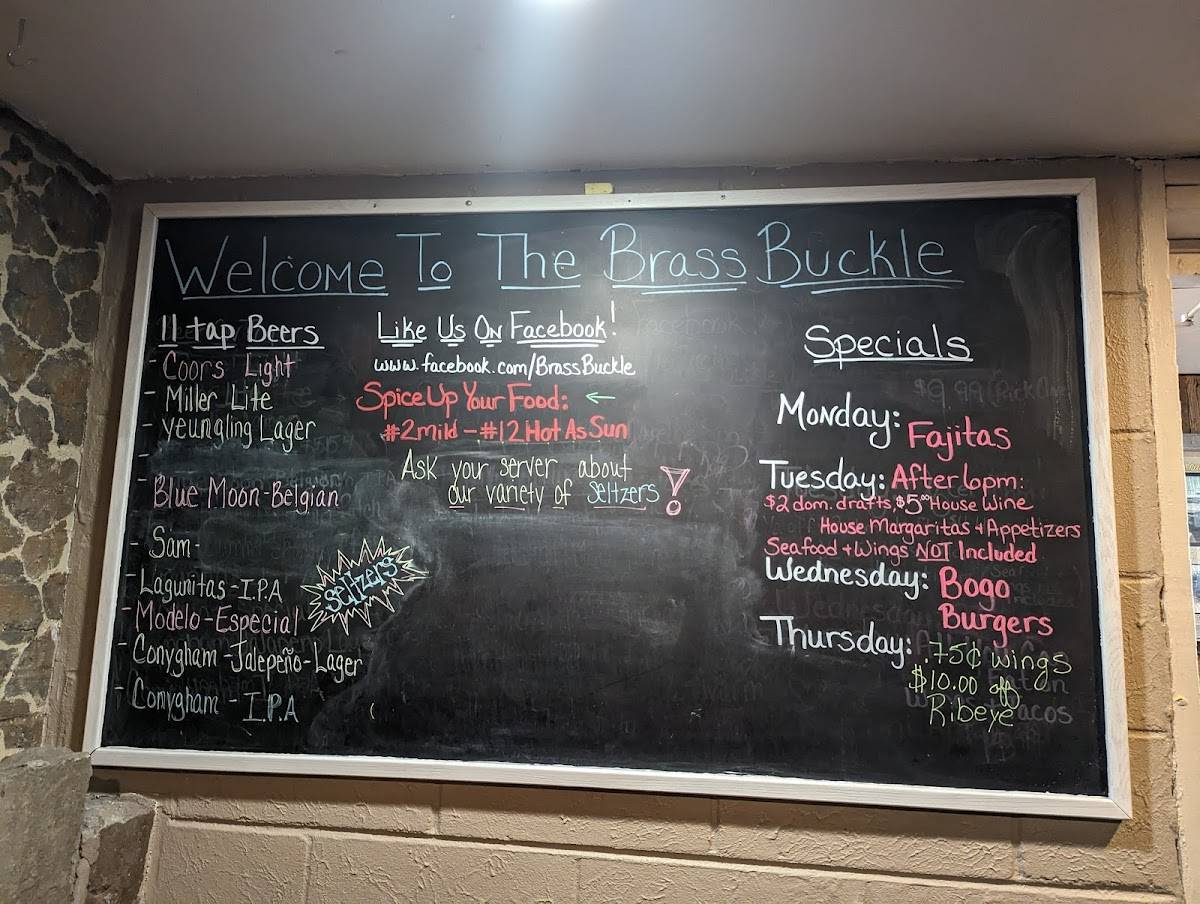 Welcome To The Brass Buckle
11 tap Beers
- Coors Light
- Miller Lite
- Yeungling Lager
-
- Blue Moon-Belgian
- Sam-
- Lagunitas-I.P.A
- Modelo-Especial
- Conygham-Jalepeño-Lager
- Conygham - I.P.A
Seltzers
Like Us On Facebook!
www.facebook.com/BrassBuckle
Spice Up Your Food: ←
#2 mild - #12 Hot As Sun
Ask your server about
our variety of Seltzers!
Specials
Monday: Fajitas
Tuesday: After 6pm:
$2 dom. drafts, $5.00 House Wine
House Margaritas + Appetizers
Seafood + Wings NOT Included
Wednesday: Bogo
Burgers
Thursday: .75¢ wings
$10.00 off
Ribeye